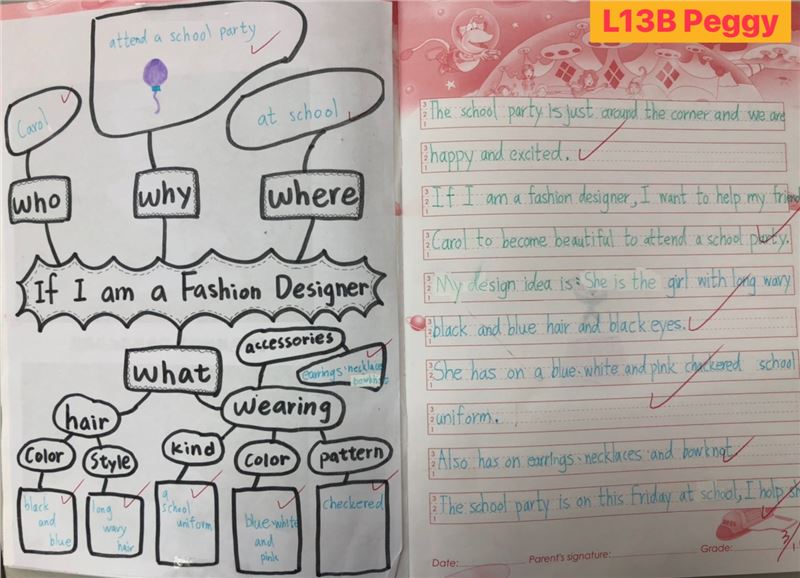 L13B Peggy
attend a school party
Carol
at school
who
why
where
If I am a Fashion Designer
what
accessories
earrings、necklaces
bowknot
hair
wearing
Color
Style
kind
Color
pattern
black
and
blue
long
wavy
hair
a
school
uniform
blue、white
and
pink
checkered
The school party is just around the corner and we are
happy and excited.
If I am a fashion designer, I want to help my friend
Carol to become beautiful to attend a school party.
My design idea is: She is the girl with long wavy
black and blue hair and black eyes.
She has on a blue、white and pink checkered school
uniform.
Also has on earrings、necklaces and bowknot.
The school party is on this Friday at school, I hope
Date:
Parent's signature:
Grade: